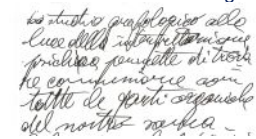 Lo studio grafologico alla
luce della interpretazione
permette di trova
re connessione con
tutte le parti organiche
del nostro